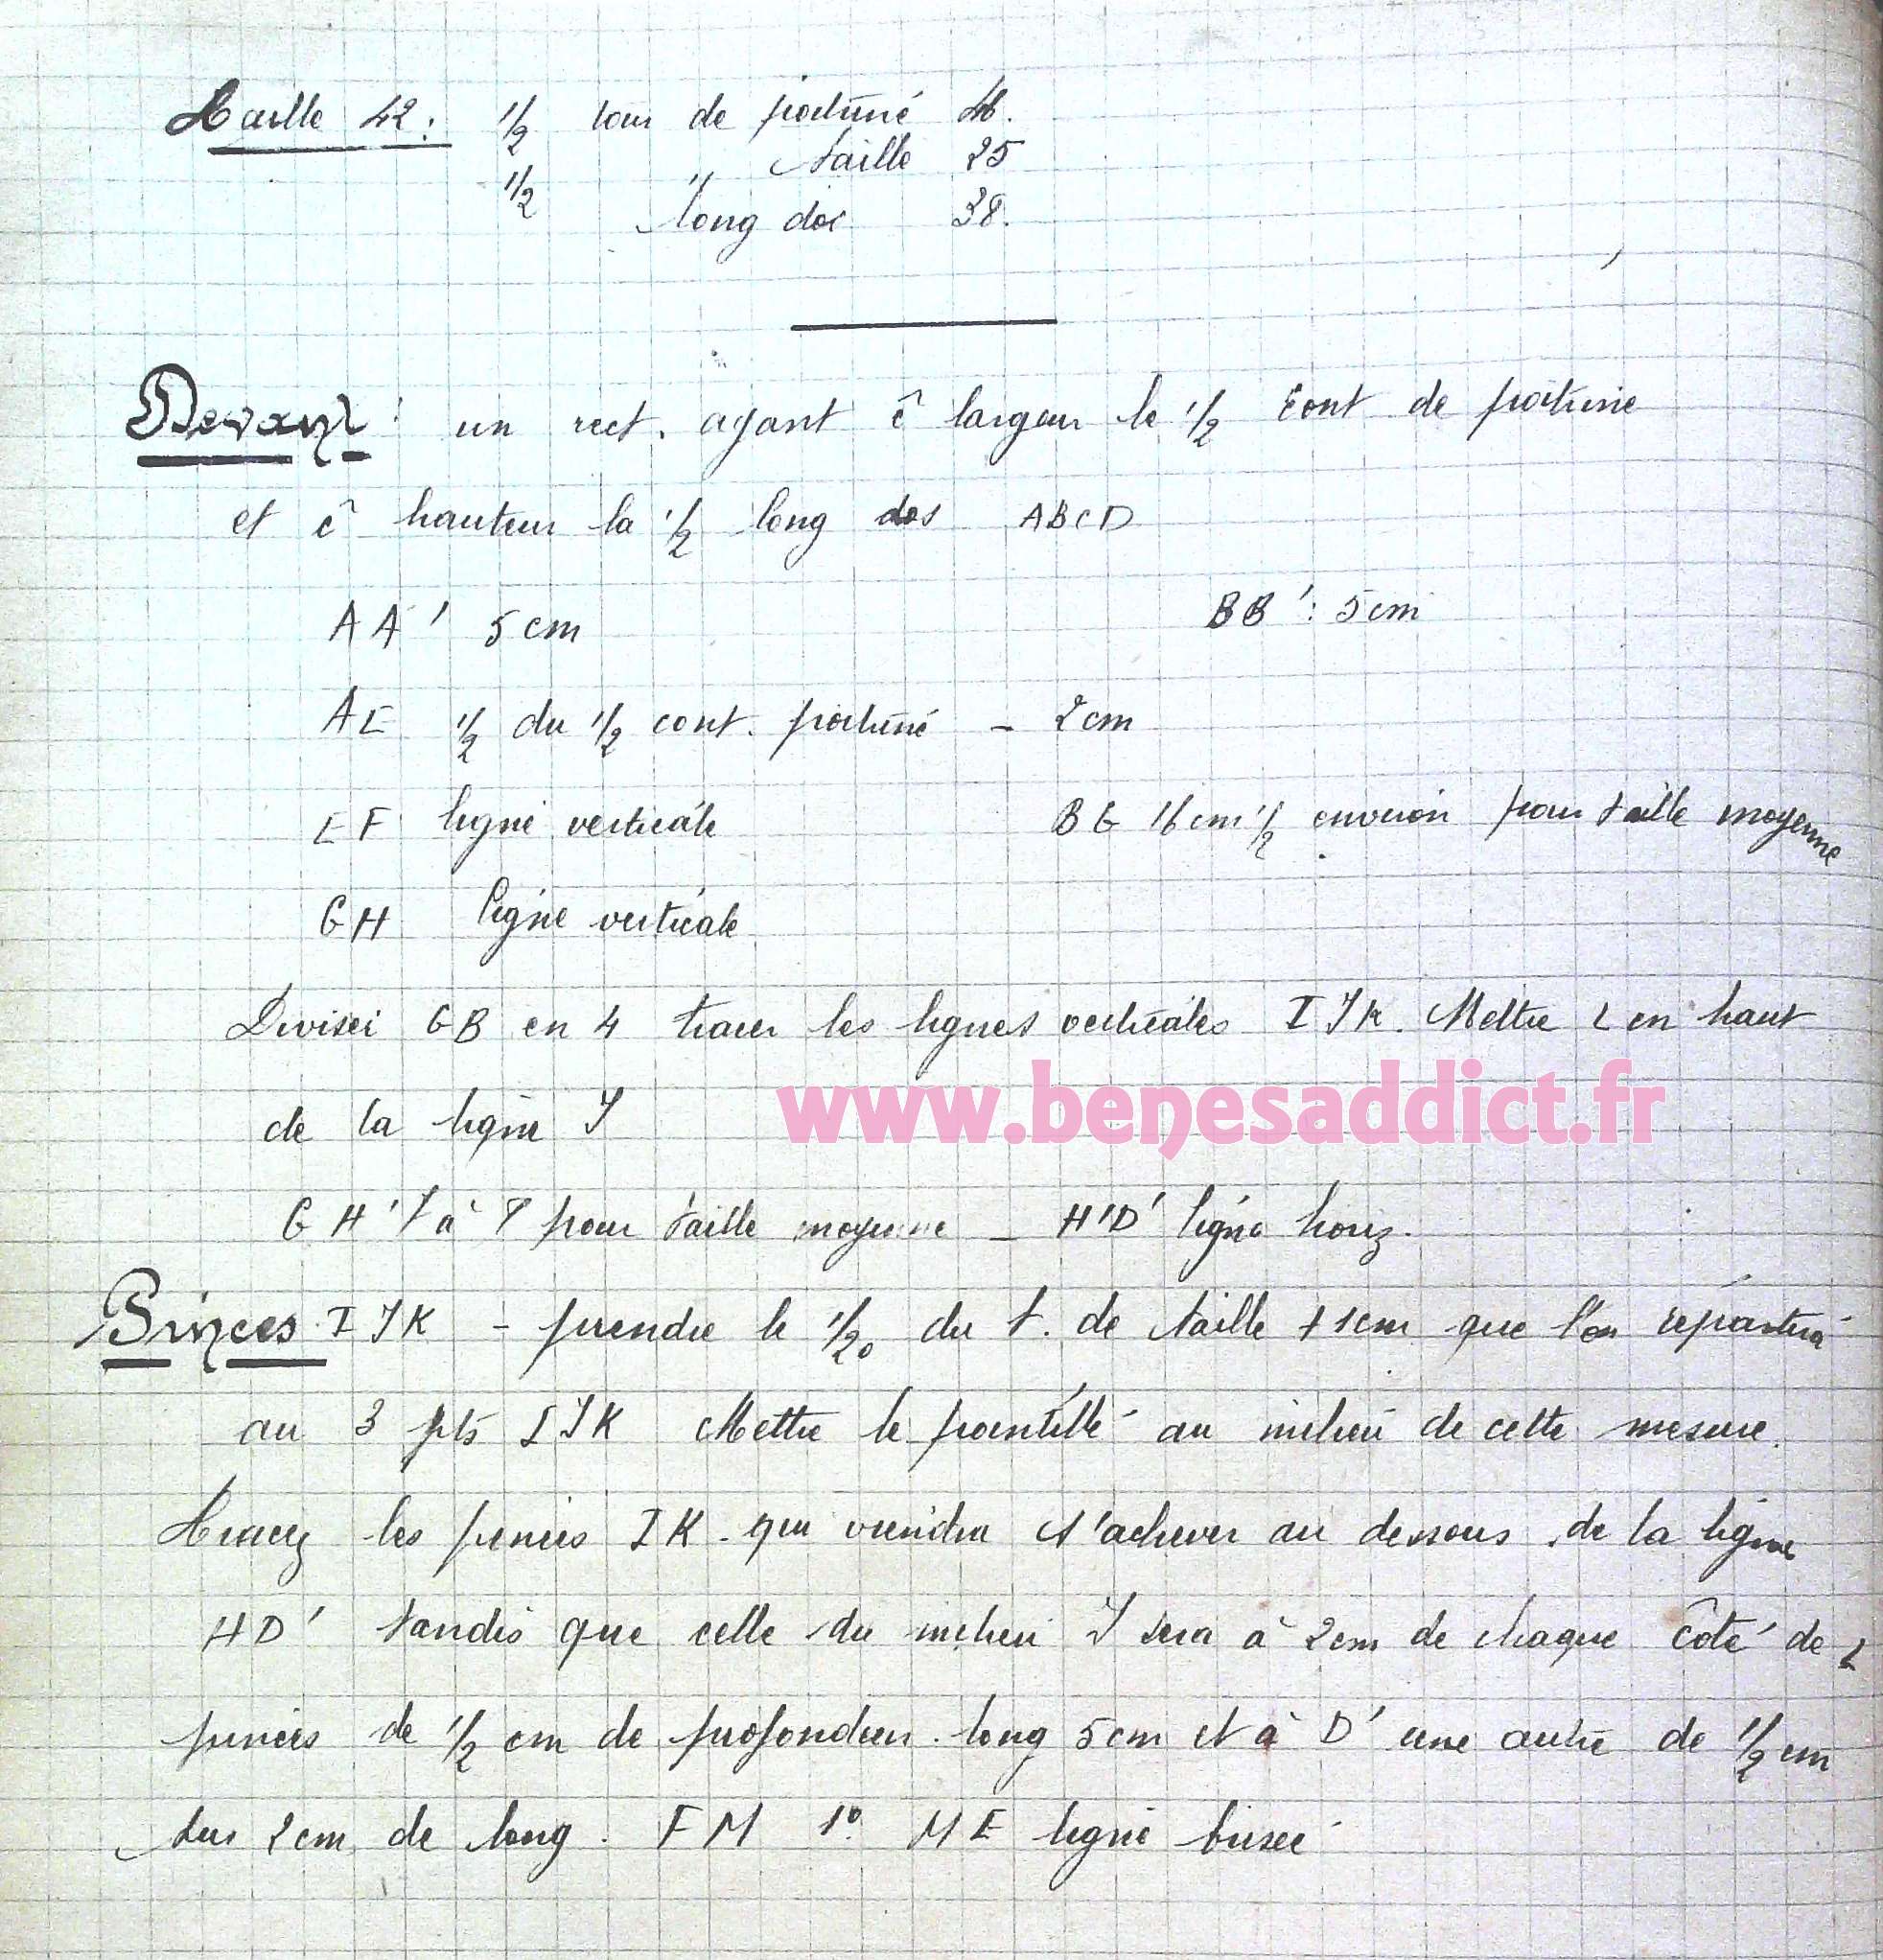 Taille 42: 1/2 tour de poitrine 46.
1/2 " taille 25
long dos 38.
Devant: un rect. ayant ĉ largeur le 1/2 cont de poitrine
et ĉ hauteur la 1/2 long dos ABCD
AA' 5cm BB': 5cm
AE 1/2 du 1/2 cont. poitrine - 2cm
EF ligne verticale BG 16cm 1/2 environ pour taille moyenne
GH ligne verticale
Diviser GB en 4 tracer les lignes verticales I J K. Mettre L en haut
de la ligne J
www.benesaddict.fr
GH' 7 à 8 pour taille moyenne - H'D' ligne horiz.
Pinces I J K - prendre le 1/20 du t. de taille + 1cm que l'on répartira
au 3 pts I J K Mettre le pointillé au milieu de cette mesure.
Tracez les pinces I K - qui viendra s'achever au dessous de la ligne
HD' tandis que celle du milieu J sera à 2cm de chaque côté de L
pinces de 1/2 cm de profondeur. long 5cm et à D' une autre de 1/2 cm
sur 2cm de long. FM 1° ME ligne brisée